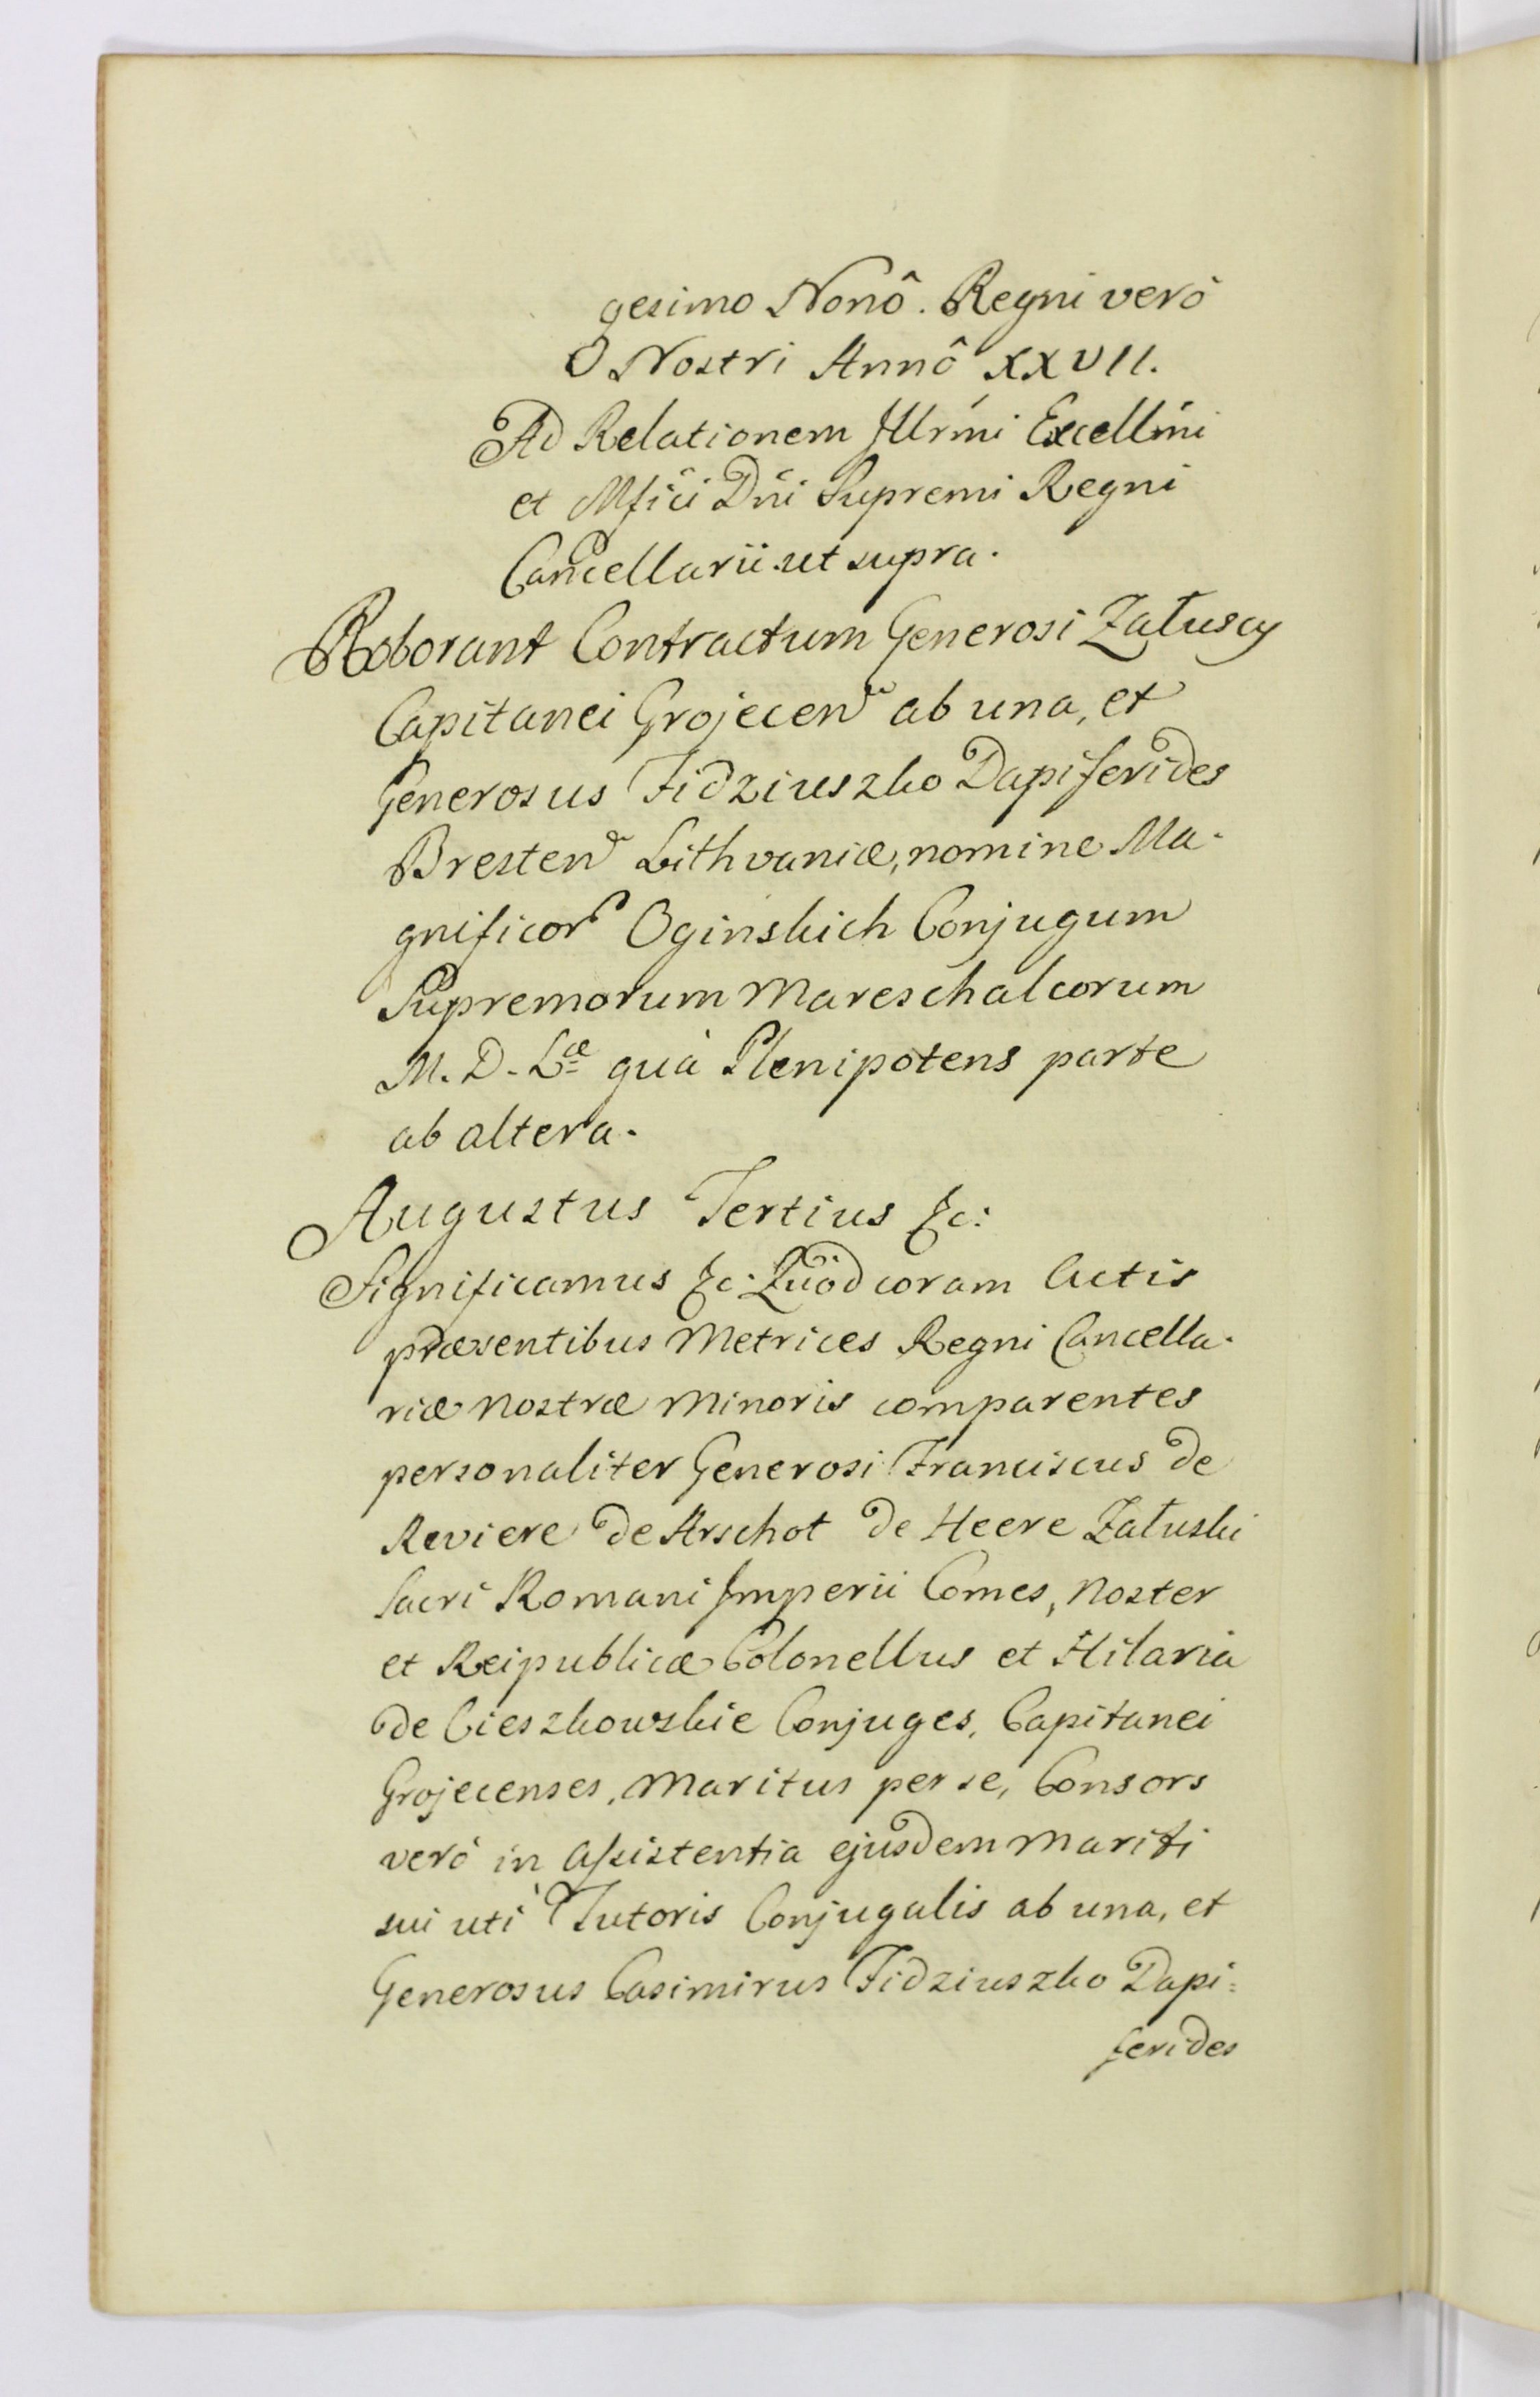 gesimo Nonô. Regni verò
Nostri Annô XXVII.
Ad Relationem Illrm̃i Excellm̃i
et Mfici Dni Supremi Regni
Cancellarii ut supra.
Roborant Contractum Generosi Załuscy
Capitanei Grojecen ab una, et
Generosus Fidziuszko Dapiferides
Bresten Lithvaniæ, nomine Ma-
gnificor Oginskich Conjugum
Supremorum Mareschalcorum
M. D. Læ quà Plenipotens parte
ab altera.
Augustus Tertius &c:
Significamus &c: Quòd coram Actis
præsentibus Metrices Regni Cancella-
riæ Nostræ Minoris comparentes
personaliter Generosi Franciscus de
Reviere de Arschot de Heere Załuski
Sacri Romani Imperii Comes, Noster
et Reipublicæ Colonellus et Hilaria
de Cieszkowskie Conjuges, Capitanei
Grojecenses, Maritus per se, Consors
verò in Assistentia ejusdem Mariti
sui utì Tutoris Conjugalis ab una, et
Generosus Casimirus Fidziuszko Dapi=
ferides